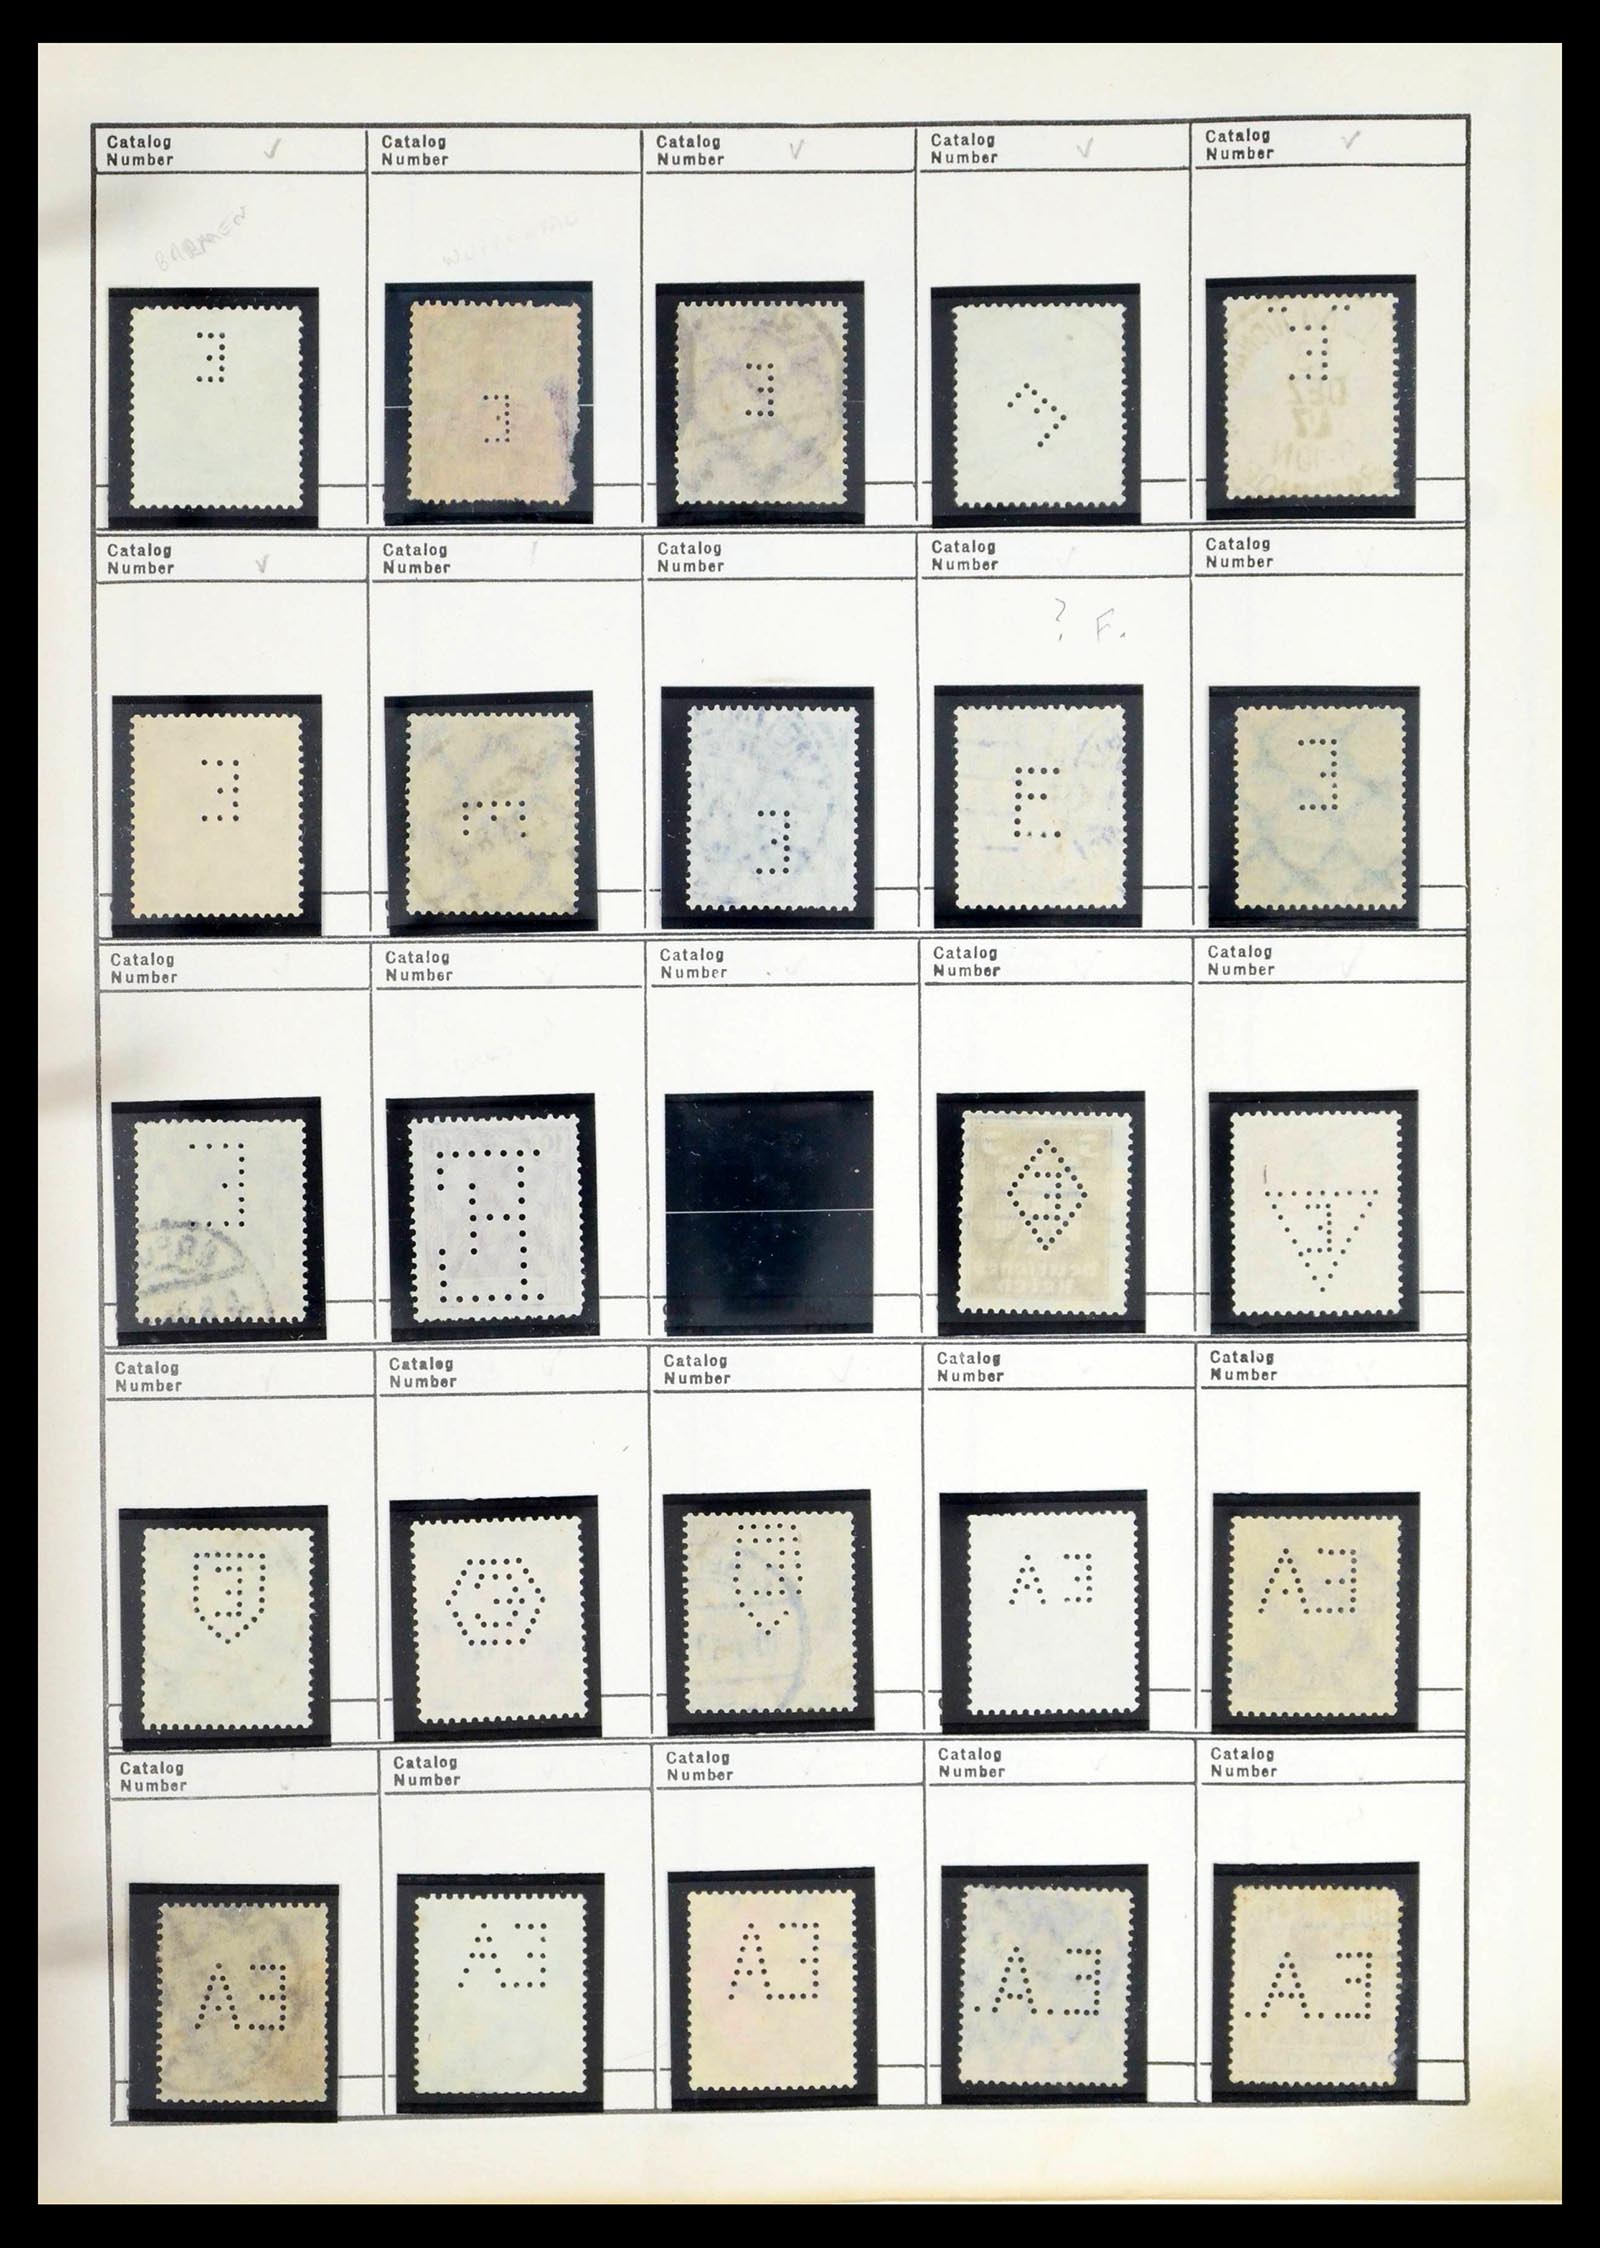 Catalog Number ✓
Catalog Number
Catalog Number ✓
Catalog Number ✓
Catalog Number ✓
BARMEN
E
E
E
E
E
DEZ
07
Catalog Number ✓
Catalog Number
Catalog Number
Catalog Number
Catalog Number
? F.
E
E
E
E
E
Catalog Number
Catalog Number
Catalog Number
Catalog Number
Catalog Number
E
E
E
E
Catalog Number
Catalog Number
Catalog Number
Catalog Number
Catalog Number
E
E
E
EA
EA
Catalog Number
Catalog Number
Catalog Number
Catalog Number
Catalog Number
EA
EA
EA
E.A.
E.A.